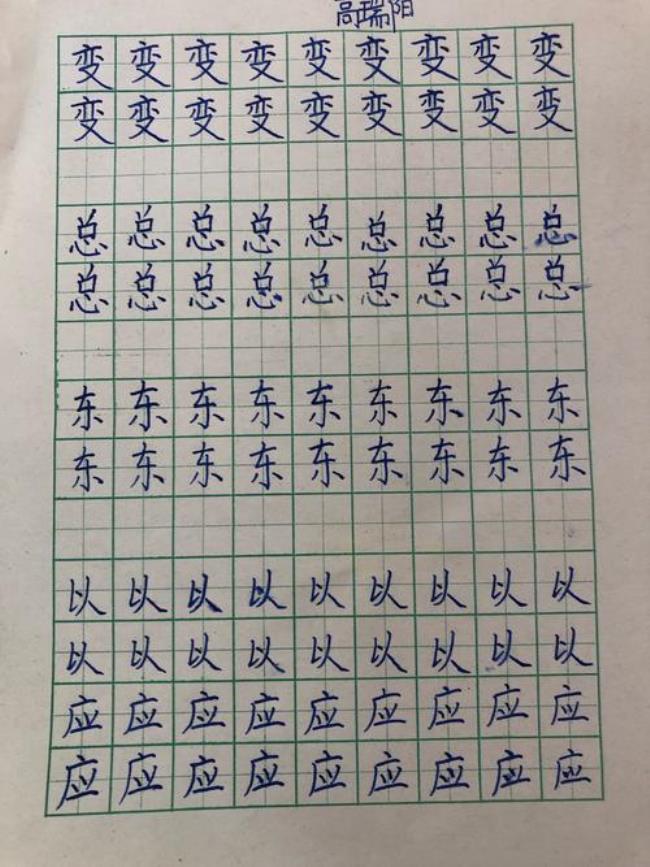 高瑞阳
变变变变变变变变变
变变变变变变变变变
总总总总总总总总总
总总总总总总总总总
东东东东东东东东东
东东东东东东东东东
以以以以以以以以以
以以以以以以以以以
应应应应应应应应应
应应应应应应应应应